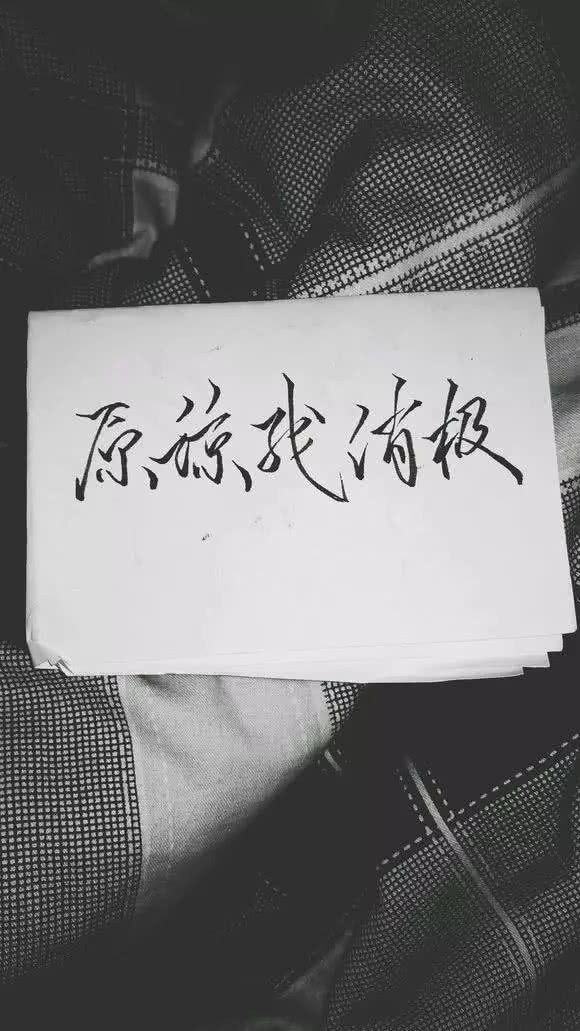 原谅我消极